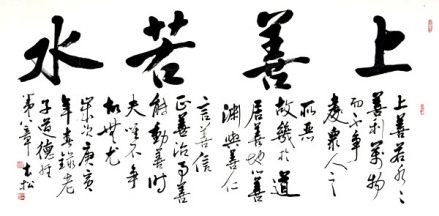 上善若水
上善若水水
善利萬物
而不爭
處衆人之
所惡
故幾於道
居善地心善
淵與善仁
言善信
正善治事善
能動善時
夫唯不爭
故無尤
歲次庚寅
年春錄老
子道德經
第八章 士松